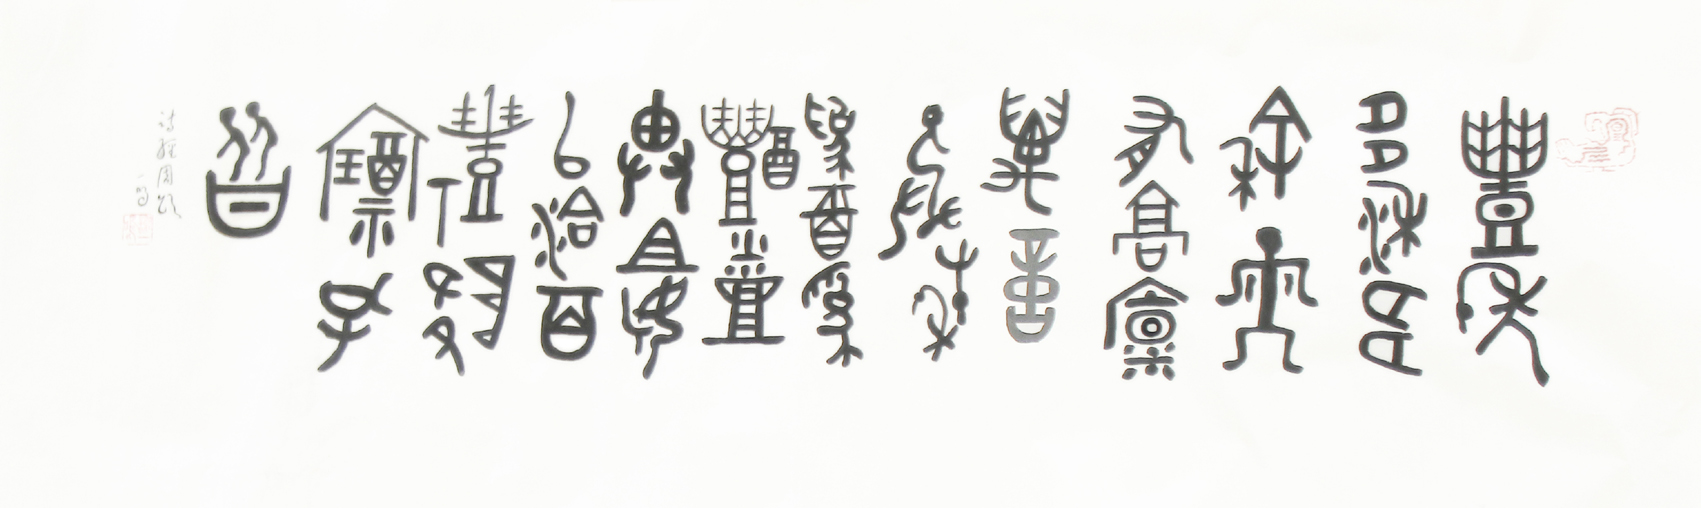 豐年
多黍多
稌亦
有高廩
萬億
及秭
為酒為
醴烝
畀祖妣
以洽百
禮降
福孔
皆
詩經周頌